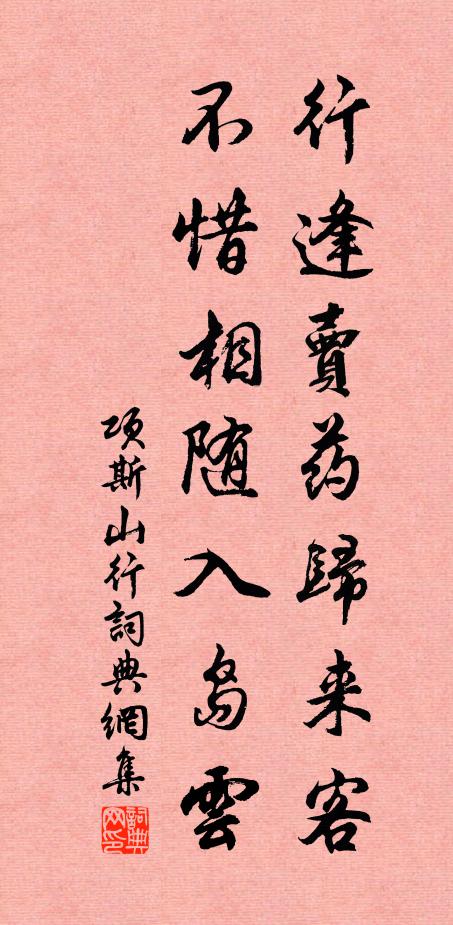 行逢賣药歸来客
不惜相随入島雲
项斯山行詞典網集
詞典网印